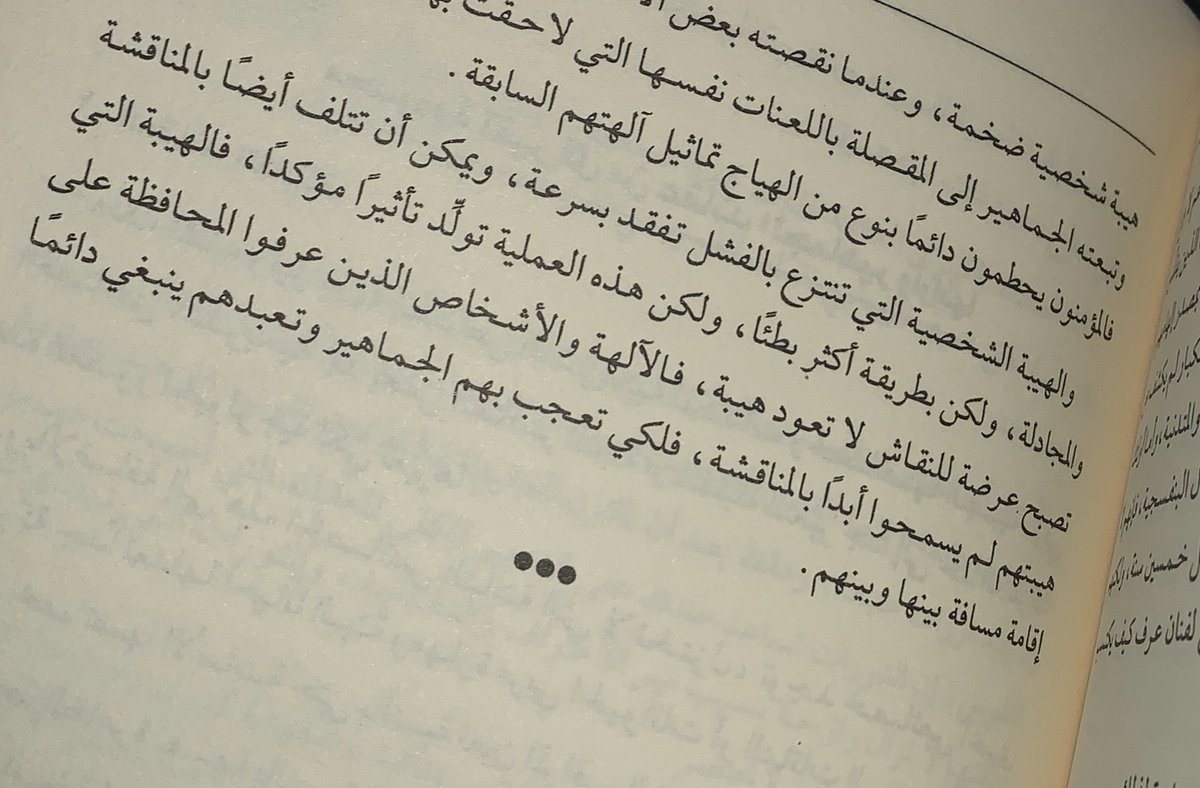 هيبة شخصية ضخمة، وعندما نقصته بعض
وتبعته الجماهير إلى المقصلة باللعنات نفسها التي لاحقت
فالمؤمنون يحطمون دائمًا بنوع من الهياج تماثيل آلهتهم السابقة.
والهيبة الشخصية التي تنتزع بالفشل تفقد بسرعة، ويمكن أن تتلف أيضًا بالمناقشة
والمجادلة، ولكن بطريقة أكثر بطئًا، ولكن هذه العملية تولِّد تأثيرًا مؤكدًا، فالهيبة التي
تصبح عرضة للنقاش لا تعود هيبة، فالآلهة والأشخاص الذين عرفوا المحافظة على
هيبتهم لم يسمحوا أبدًا بالمناقشة، فلكي تعجب بهم الجماهير وتعبدهم ينبغي دائمًا
إقامة مسافة بينها وبينهم.
●●●
خمسين سنة،
لفنان عرف كيف